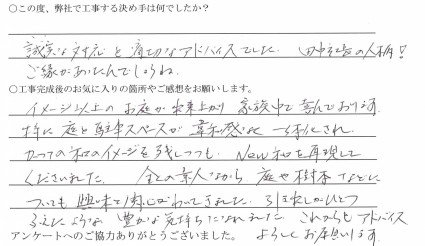 ○この度、弊社で工事する決め手は何でしたか?
誠実な対応と適切なアドバイスでした。田中社長の人柄!
ご縁があったんでしょうね。
○工事完成後のお気に入りの箇所やご感想をお願いします。
イメージ以上のお庭が出来上がり 家族中で喜んでおります。
特に庭と駐車スペースが違和感なく一体化され、
かつての和のイメージを残しつつも、New和を再現して
くださいました。 全くの素人ながら、庭や樹木などに
ついても興味と関心がわいてきました。引き出しがひとつ
ふえたような豊かな気持ちになれました。これからもアドバイス
アンケートへのご協力ありがとうございました。 よろしくお願いします。